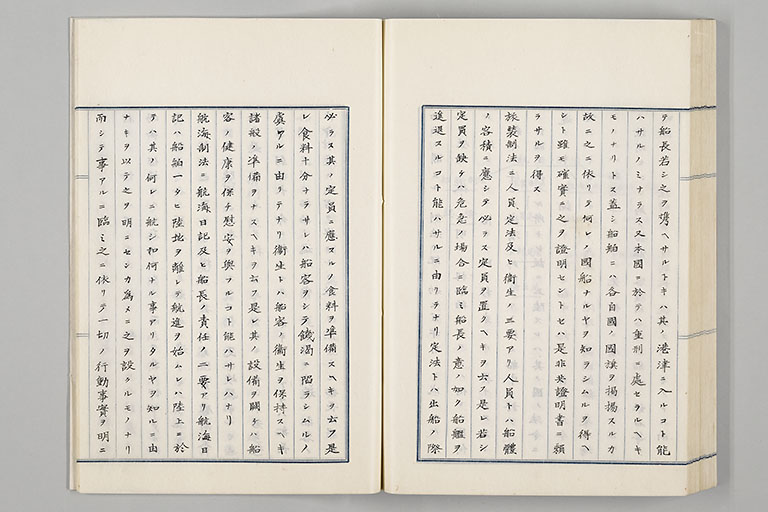 ヲ船長若シ之ヲ携ヘサルトキハ其ノ港津ニ入ルコト能
ハサルノミナラス又本國ニ於テハ重刑ニ處セラルヘキ
モノナリトス蓋シ船舶ニハ各自國ノ國旗ヲ揭揚スルカ
故ニ之ニ依リテ何レノ國船ナルヤヲ知ラシムルヲ得ヘ
シト雖モ確實ニ之ヲ證明セントセハ是非共證明書ニ賴
ラサルヲ得ス
旅裝制法ニ人員定法及ヒ衞生ノ二要アリ人員トハ船體
ノ容積ニ應シテ必ラス定員ヲ置クヘキヲ云フ是レ若シ
定員ヲ缺ケハ危急ノ場合ニ臨ミ船長ノ意ノ如ク船艦ヲ
進退スルコト能ハサルニ由リテナリ定法トハ出船ノ際
必ラス其ノ定員ニ應スルノ食料ヲ準備スヘキヲ云フ是
レ食料十分ナラサレハ船客ヲシテ饑渴ニ陷ラシムルノ
虞アルニ由リテナリ衞生トハ船客ノ衞生ヲ保持スヘキ
諸般ノ準備ヲナスヘキヲ云フ是レ其ノ設備ヲ闕ケハ船
客ノ健康ヲ保チ慰安ヲ與フルコト能ハサレハナリ
航海制法ニ航海日記及ヒ船長ノ責任ノ二要アリ航海日
記ハ船舶一タヒ陸地ヲ離レテ航進ヲ始ムレハ陸上ニ於
テハ其ノ何レニ航シ和何ナル事アリタルヤヲ知ルニ由
ナキヲ以テ之ヲ明ニセンカ爲メニ之ヲ設クルモノナリ
而シテ事アルニ臨ミ之ニ依リテ一切ノ行動事實ヲ明ニ